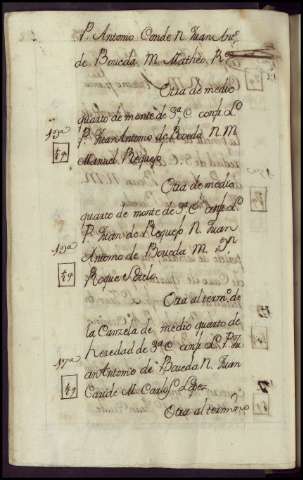 P. Antonio Conde N. Juan Antº
de Boueda M. Matheo
Otra de medio
quarto de monte de 3ª C confª L.
P. Juan Antonio de Boveda N. M.
Manuel Requejo
Otra de medio
quarto de monte de 3ª C confª L.
P. Juan de Requejo N. Juan
Antonio de Boueda M. Dn
Roque
Otra al termº de
la Canzela de medio quarto de
heredad de 3ª C confª L. P. Ju
an Antonio de Boueda N. Juan
Conde M. Carlos Lopez
Otra al termino